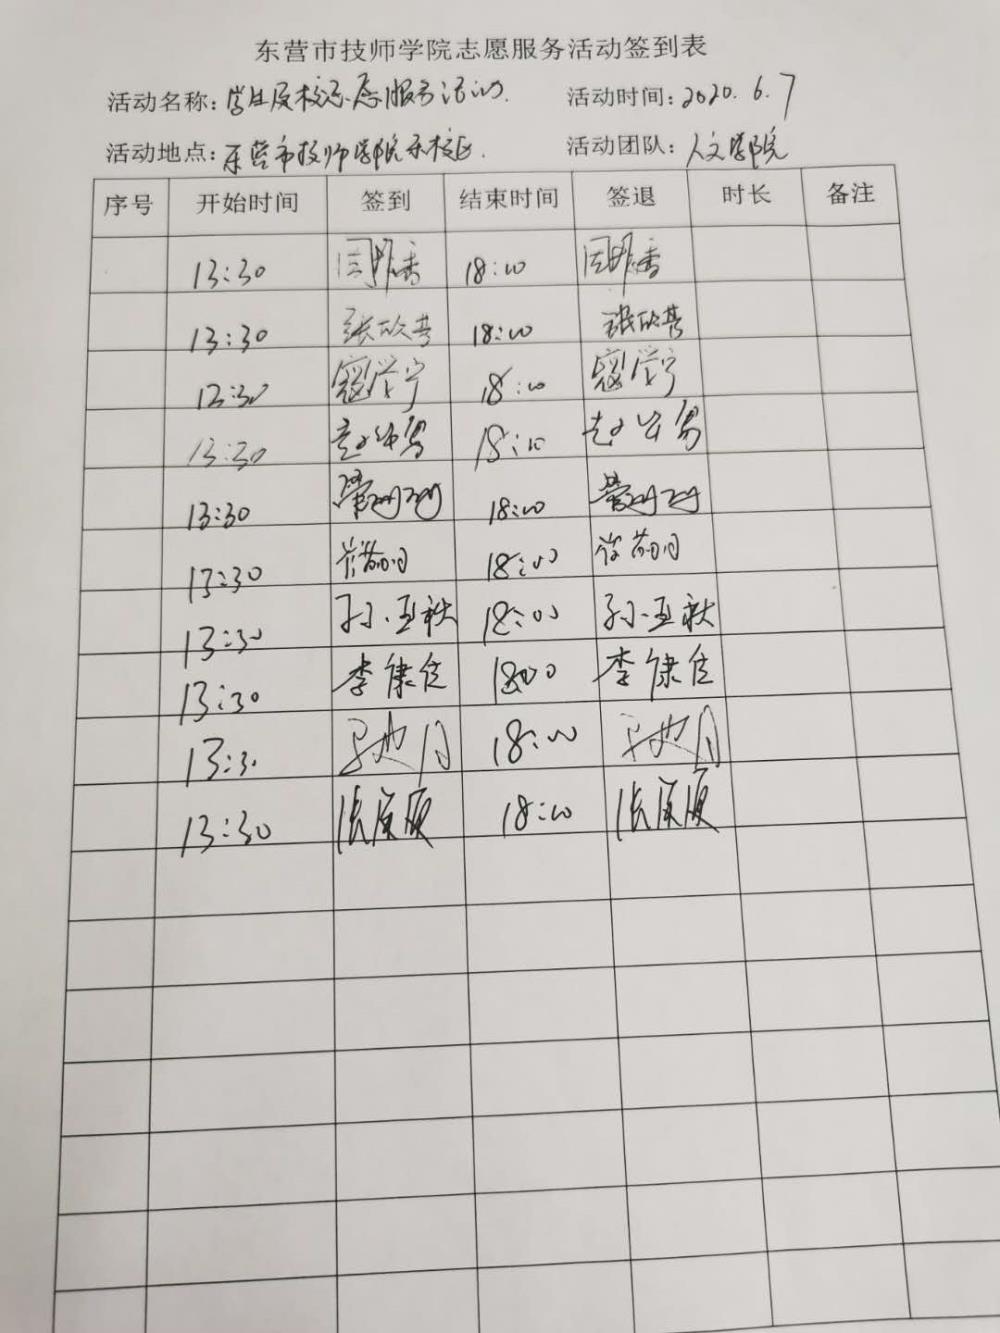 东营市技师学院志愿服务活动签到表
活动名称：学生返校志愿服务活动． 活动时间：2020.6.7
活动地点：东营市技师学院东校区． 活动团队：人文学院
序号 开始时间 签到 结束时间 签退 时长 备注
13:30 18:00
13:30 张欣 18:00 张欣
13:30 寇学宁 18:00 寇学宁
13:30 赵 18:00 赵
13:30 18:00
13:30 18:00
13:30 孙亚秋 18:00 孙亚秋
13:30 李康 18:00 李康
13:30 18:00
13:30 张 18:00 张